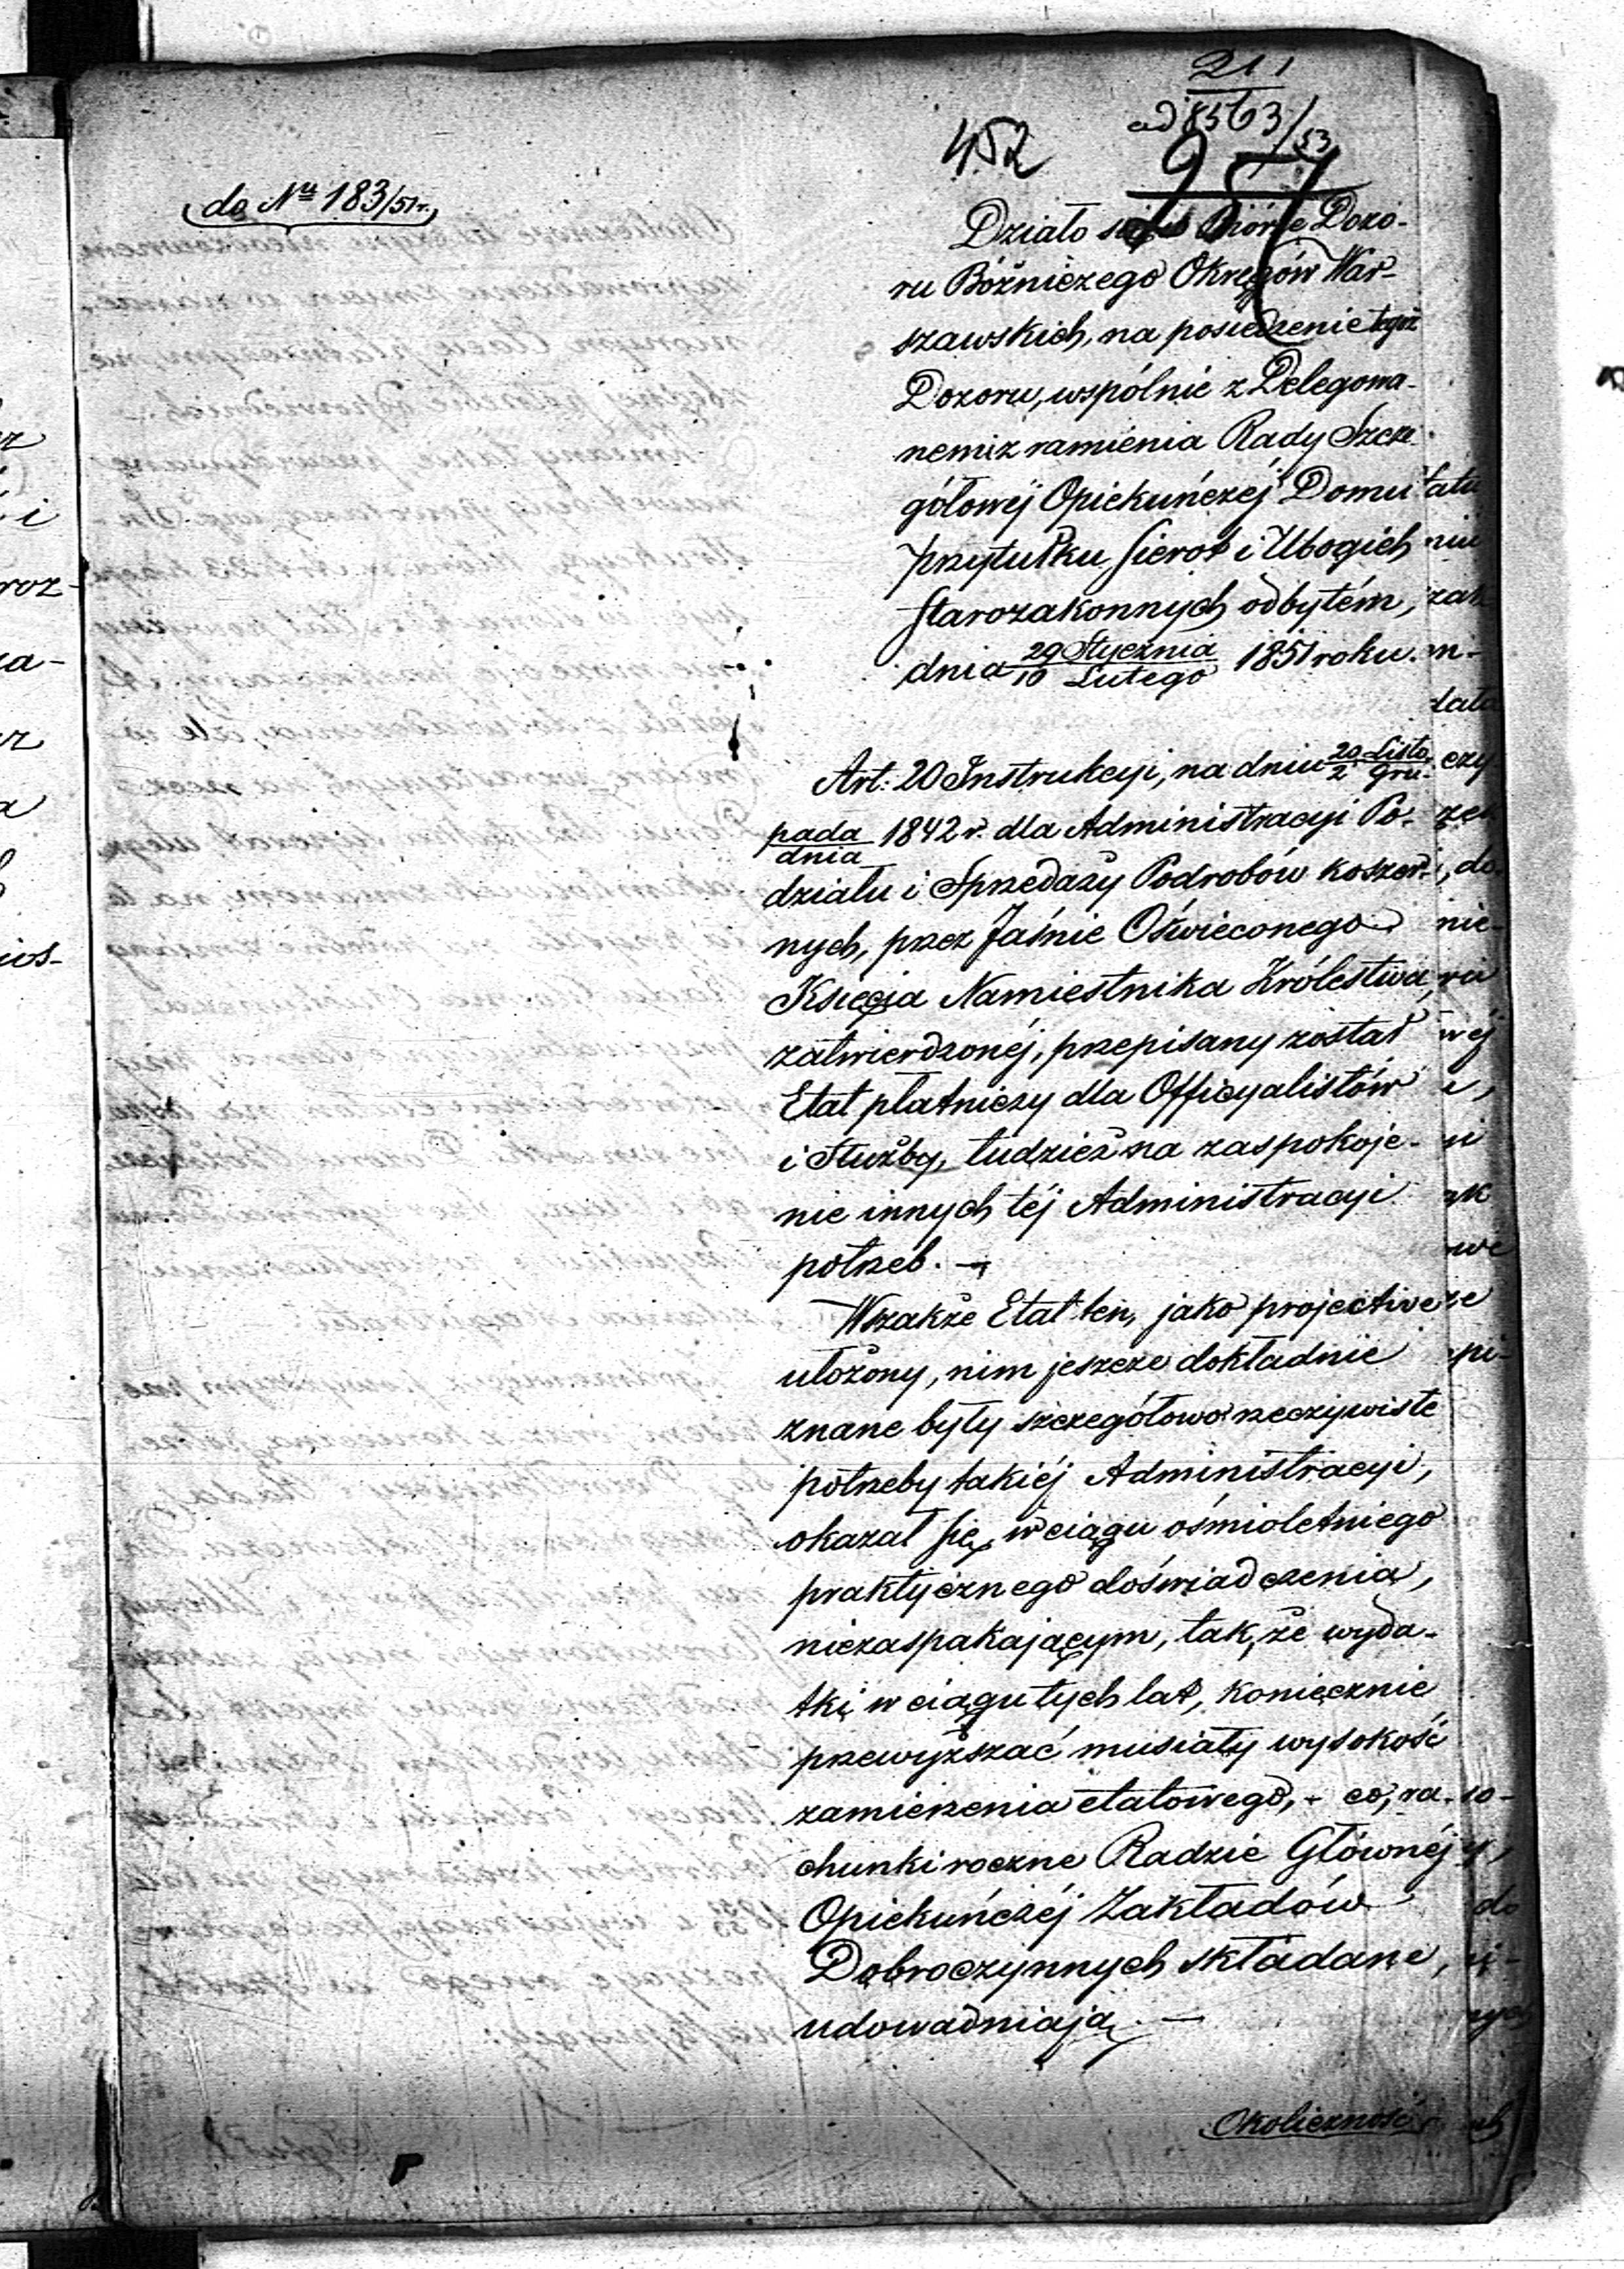 211
ad 8563/53
452
957
do Nu 183/51 r.
Działo się w Biórze Dozo-
ru Bóżniczego Okręgów War-
szawskich, na posiedzenie tegoż
Dozoru, wspólnie z Delegowa-
nemi z ramienia Rady Szcze-
gółowéj Opiekuńczéj Domu
przytułku sierot i Ubogich
starozakonnych odbytém,
dnia 29 Stycznia / 10 Lutego 1851 roku.
Art: 20 Instrukcyi, na dniu 20 Listo / 2 Gru-
pada / dnia 1842 r. dla Administracyi Po-
działu i Sprzedaży Podrobów koszer-
nych, przez Jaśnie Oświeconego
Księcia Namiestnika Królestwa,
zatwierdzonéj, przepisany został
Etat płatniczy dla Officyalistów
i Służby, tudzież na zaspokoje-
nie innych téj Administracyi
potrzeb. —
Wszakże Etat ten, jako projective
ułożony, nim jeszcze dokładnie
znane były szczegółowo rzeczywiste
potrzeby takiéj Administracyi,
okazał się, w ciągu ośmioletniego
praktycznego doświadczenia,
niezaspakajającym, tak, że wyda-
tki w ciągu tych lat, koniecznie
przewyższać musiały wysokość
zamierzenia etatowego, - co, ra-
chunki roczne Radzie Głównéj
Opiekuńczéj Zakładów
Dobroczynnych składane,
udowadniają. —
Okoliczność